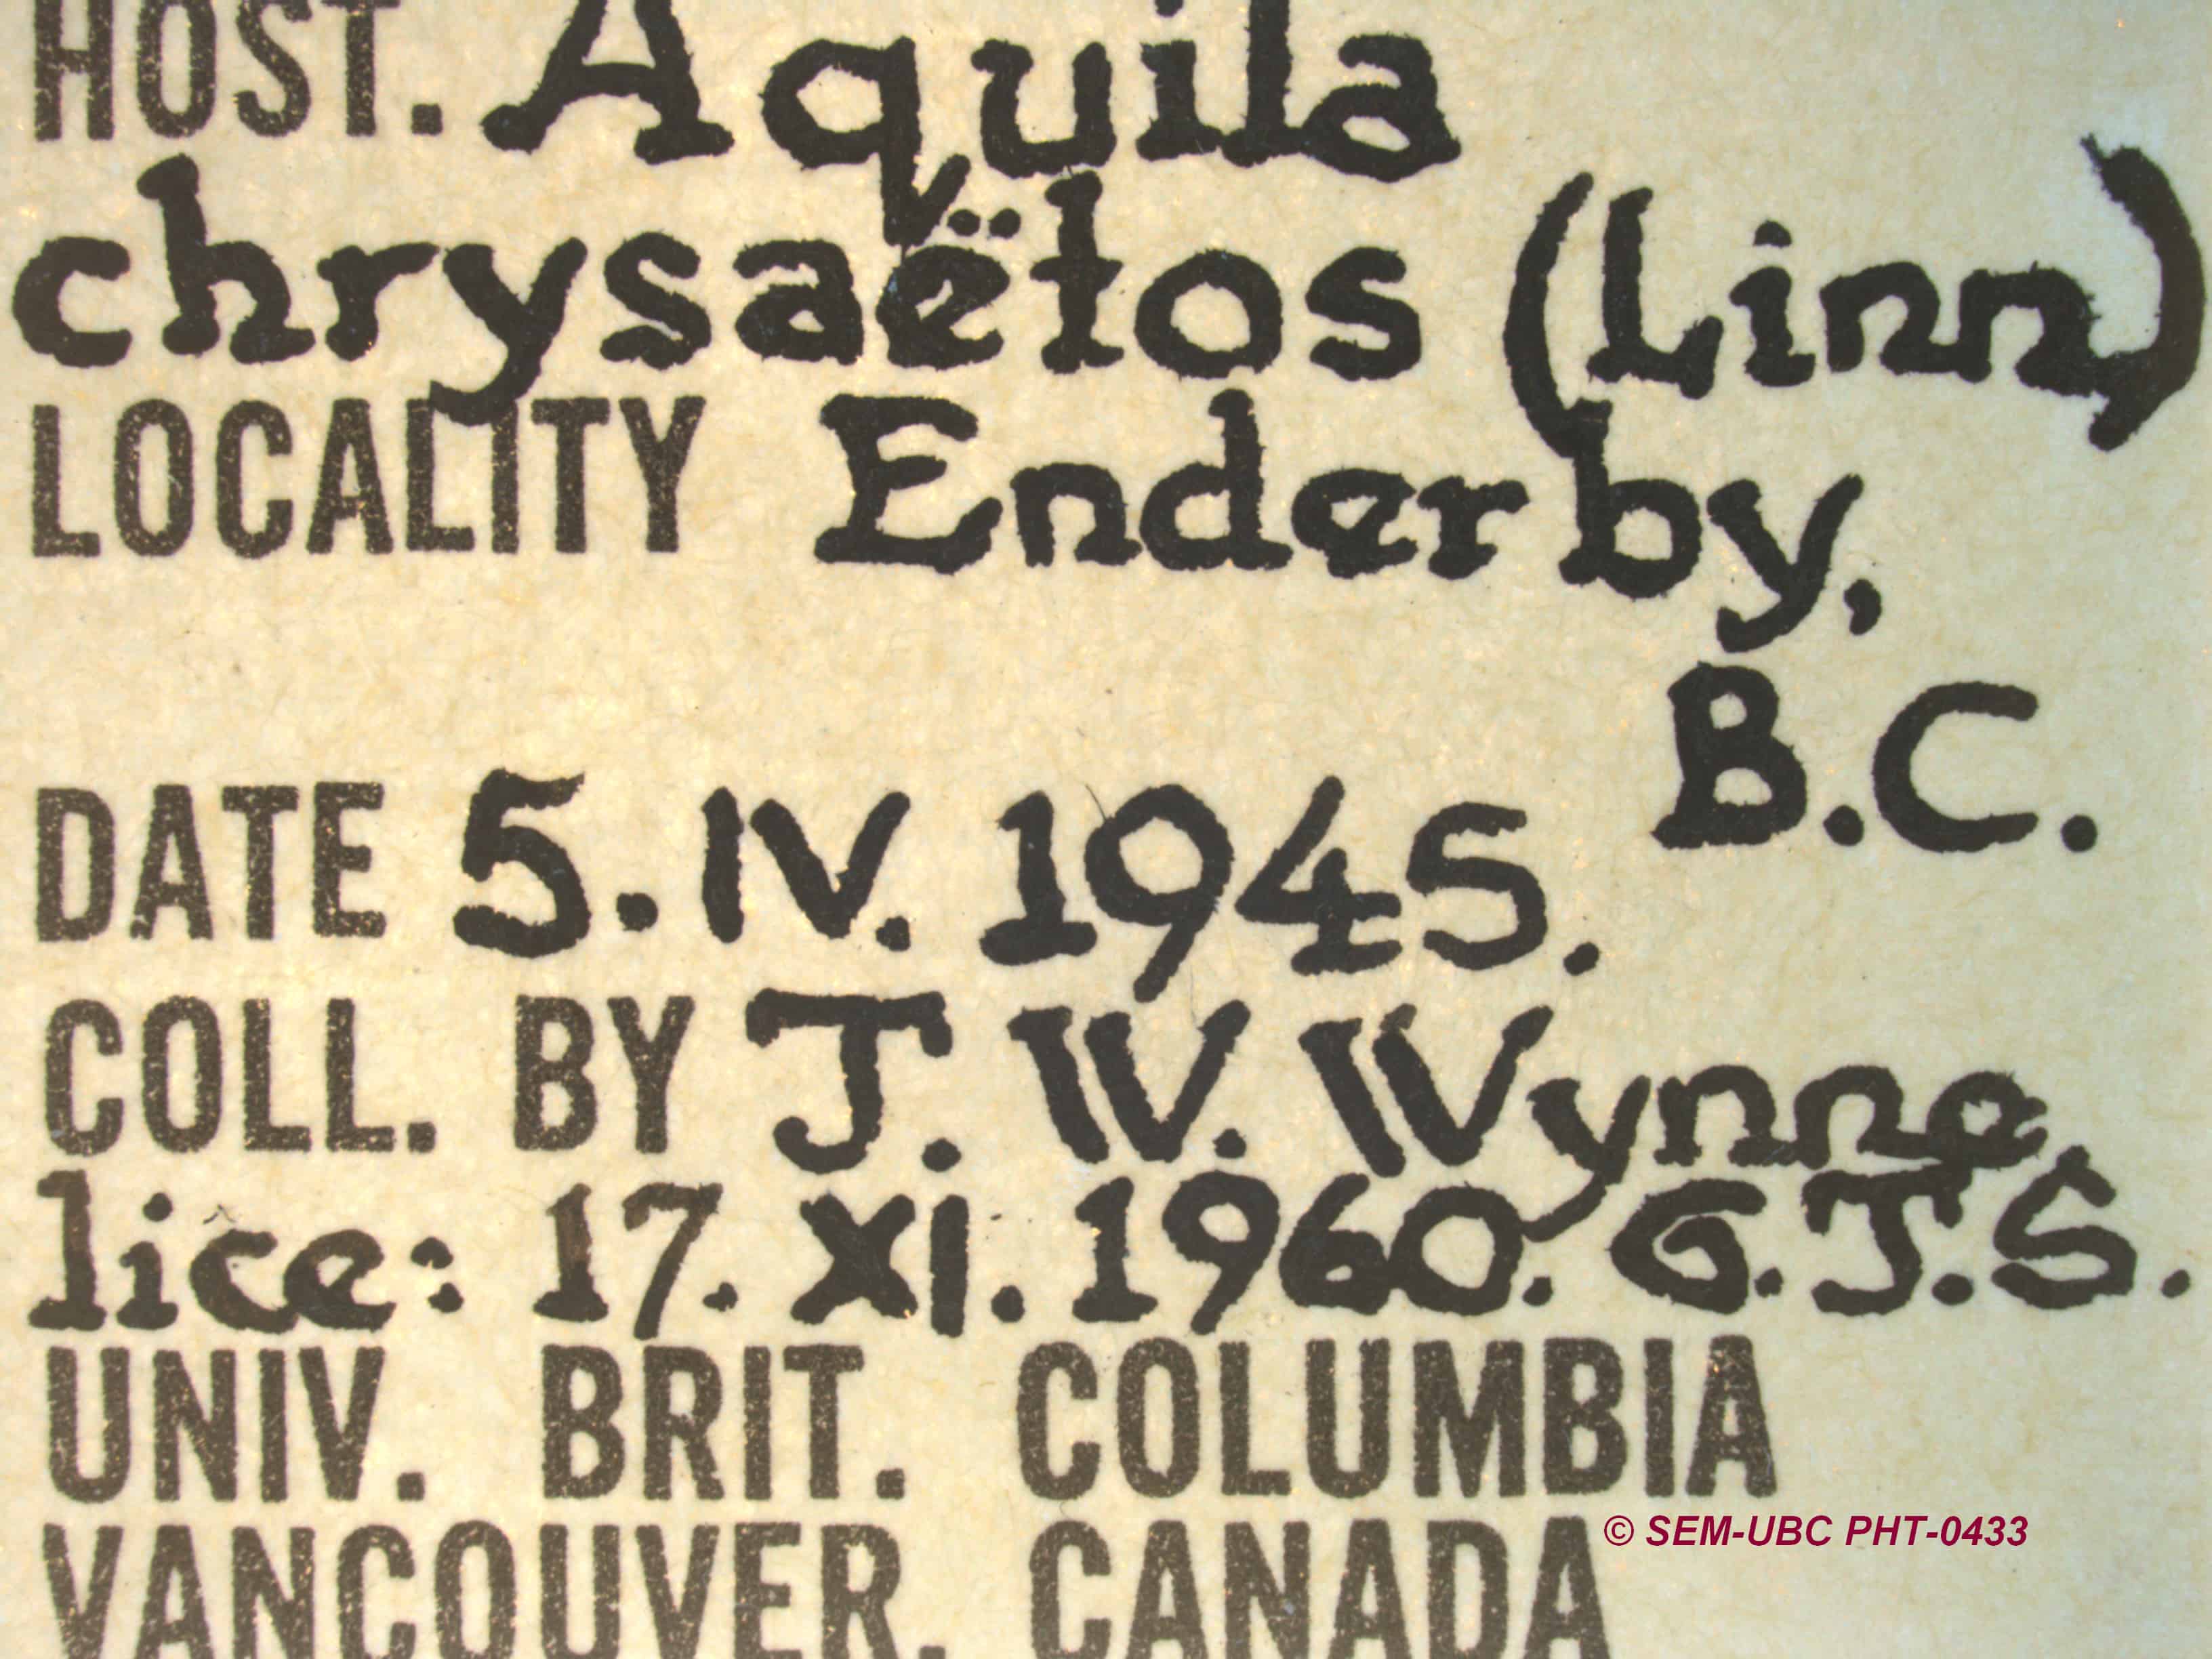 HOST. Aquila
chrysaëtos (Linn)
LOCALITY Enderby,
B.C.
DATE 5.IV. 1945.
COLL. BY J. W. Wynne,
lice: 17. XI. 1960. G.J.S.
UNIV. BRIT. COLUMBIA
© SEM-UBC PHT-0433
VANCOUVER. CANADA